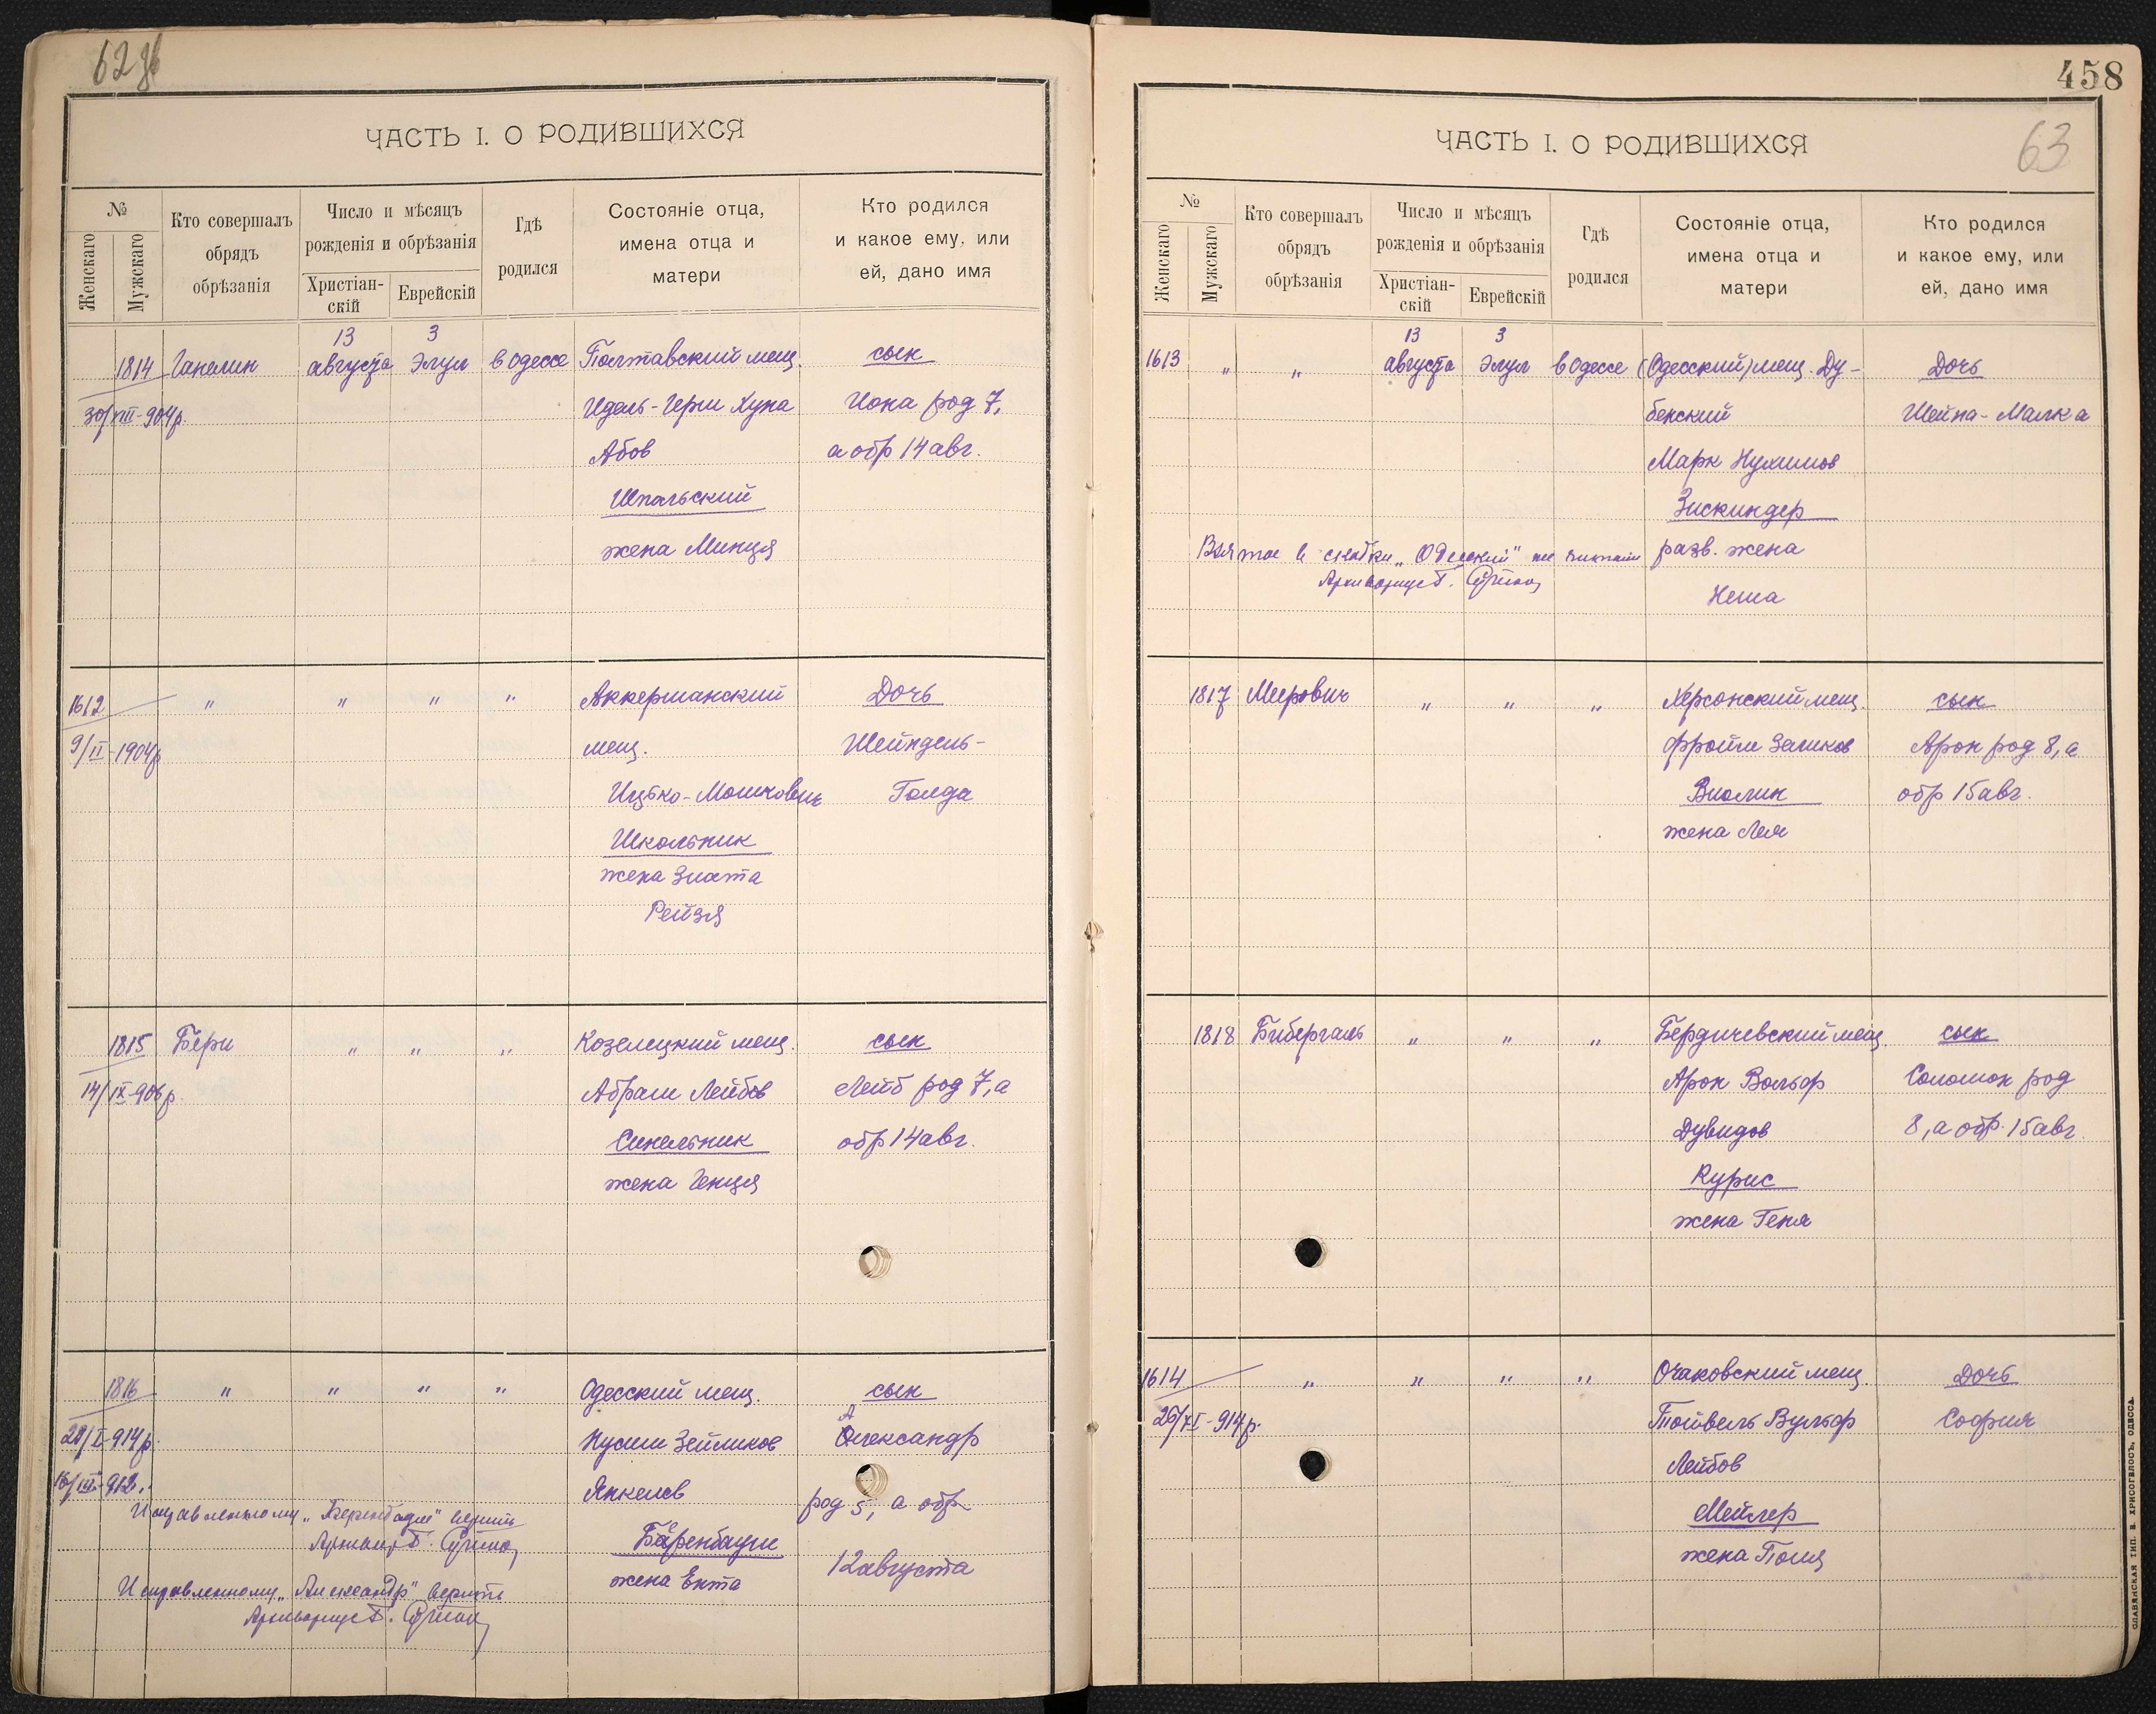 62 зв
ЧАСТЬ I. О РОДИВШИХСЯ
№
Женскаго
Мужскаго
Кто совершалъ
обрядъ
обрѣзанія
Число и мѣсяцъ
рожденія и обрѣзанія
Христіан-
скій
Еврейскій
Гдѣ
родился
Состояніе отца,
имена отца и
матери
Кто родился
и какое ему, или
ей, дано имя
13 3
1814 Ганелин августа Элул в Одессе Полтавский мещ. сын
30/VIII-904р. Идель-Герш Хуна Иона род 7,
Абов а обр 14 авг.
Шпальский
жена Минця
1612 " " " " Аккерманский Дочь
9/II-1904р мещ. Шейндель-
Ицько-Мошкович Голда
Школьник
жена Злата
Рейзя
1815 Бери " " " Козелецкий мещ. сын
14/IX-906р. Абрам Лейбов Лейб род 7, а
Синельник обр 14 авг.
жена Генця
1816 " " " " Одесский мещ. сын
28/I-914р. Нусим Зейликов Александр
16/III-912. Янкелев род 5, а обр
Исправленному "Беренбаум" верить Беренбаум 12 августа
Архивариус жена Ента
Исправленному "Александр" верить
Архивариус
458
63
ЧАСТЬ I. О РОДИВШИХСЯ
№
Женскаго
Мужскаго
Кто совершалъ
обрядъ
обрѣзанія
Число и мѣсяцъ
рожденія и обрѣзанія
Христіан-
скій
Еврейскій
Гдѣ
родился
Состояніе отца,
имена отца и
матери
Кто родился
и какое ему, или
ей, дано имя
13 3
1613 " " августа Элул в Одессе (Одесский) мещ. Ду- Дочь
бенский Шейна-Малка
Марк Нухимов
Зискиндер
Взятое в скобки "Одесский" не читать разв. жена
Архивариус
Неша
1817 Меерович " " " Херсонский мещ. сын
Фроим Заликов Арон род 8, а
Виолин обр 15 авг.
жена Лея
1818 Бибергаль " " " Бердичевский мещ. сын
Арон Вольф Соломон род
Дувидов 8, а обр. 15 авг.
Курис
жена Геня
1614 " " " " Очаковский мещ. Дочь
26/XI-914р. Тойвель Вульф София
Лейбов
Мейлер
жена Поля
СЛАВЯНСКАЯ ТИП. В. ХРИСОГЕЛОСЪ, ОДЕССА.